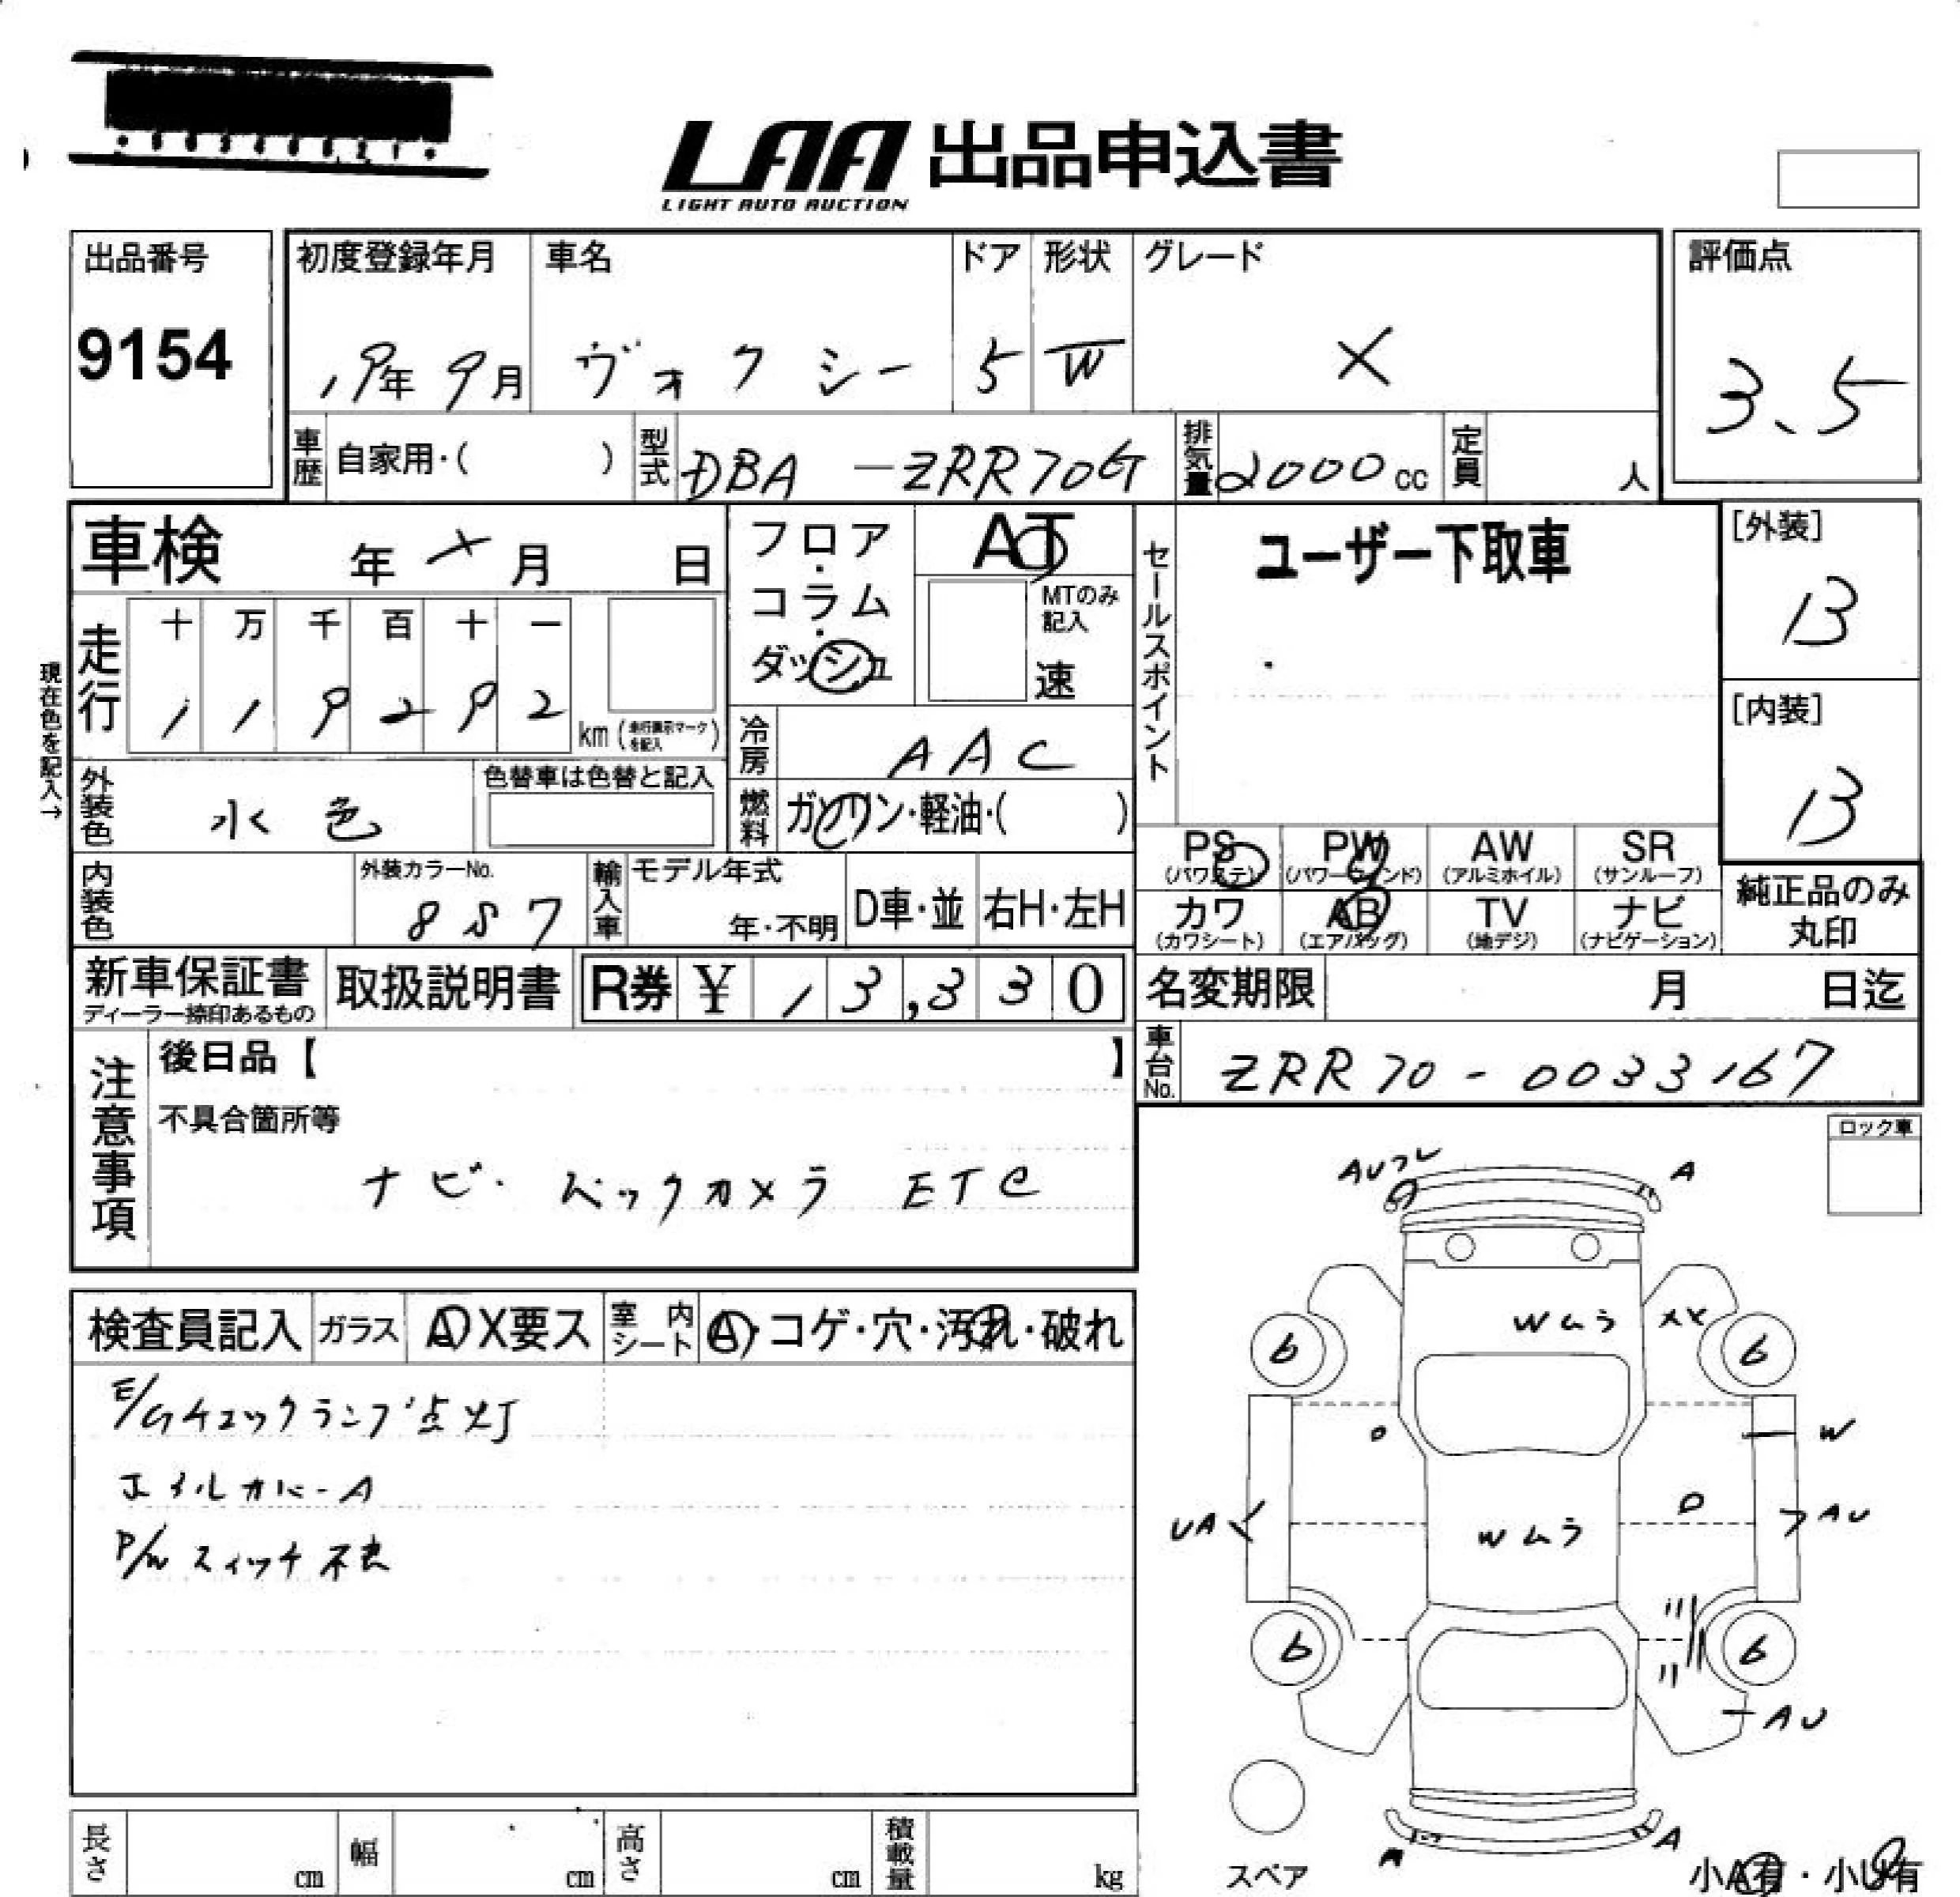 LAA 出品申込書
LIGHT AUTO AUCTION
出品番号
9154
初度登録年月
19年9月
車名
ヴォクシー
ドア
5
形状
W
グレード
X
評価点
3.5
車歴 自家用・( )
型式 DBA-ZRR70G
排気量 2000cc
定員 人
車検 年 月 日
フロア・コラム・ダッシュ
AT
MTのみ記入
速
セールスポイント
ユーザー下取車
[外装]
B
[内装]
B
現在色を記入→
走行
十 万 千 百 十 一
1 1 9 2 9 2
km (走行表示マークを記入)
冷房 AAC
外装色 水色
色替車は色替と記入
燃料 ガソリン・軽油・( )
内装色
外装カラーNo.
8S7
輸入車
モデル年式
年・不明
D車・並
右H・左H
PS
(パワステ)
PW
(パワーウィンド)
AW
(アルミホイル)
SR
(サンルーフ)
カワ
(カワシート)
AB
(エアバッグ)
TV
(地デジ)
ナビ
(ナビゲーション)
純正品のみ
丸印
新車保証書
ディーラー捺印あるもの
取扱説明書
R券 ¥ 13,330
名変期限 月 日迄
車台No. ZRR70-0033167
注意事項
後日品【 】
不具合箇所等
ナビ・バックカメラ ETC
ロック車
検査員記入
ガラス A・X要ス
室内シート A・コゲ・穴・汚れ・破れ
E/Gチェックランプ点灯
オイルカバーA
P/Wスイッチ不良
A
Wムラ
XX
6
6
W
UA
Wムラ
AU
6
6
AU
A
スペア
小A有・小U有
長さ cm
幅 cm
高さ cm
積載量 kg